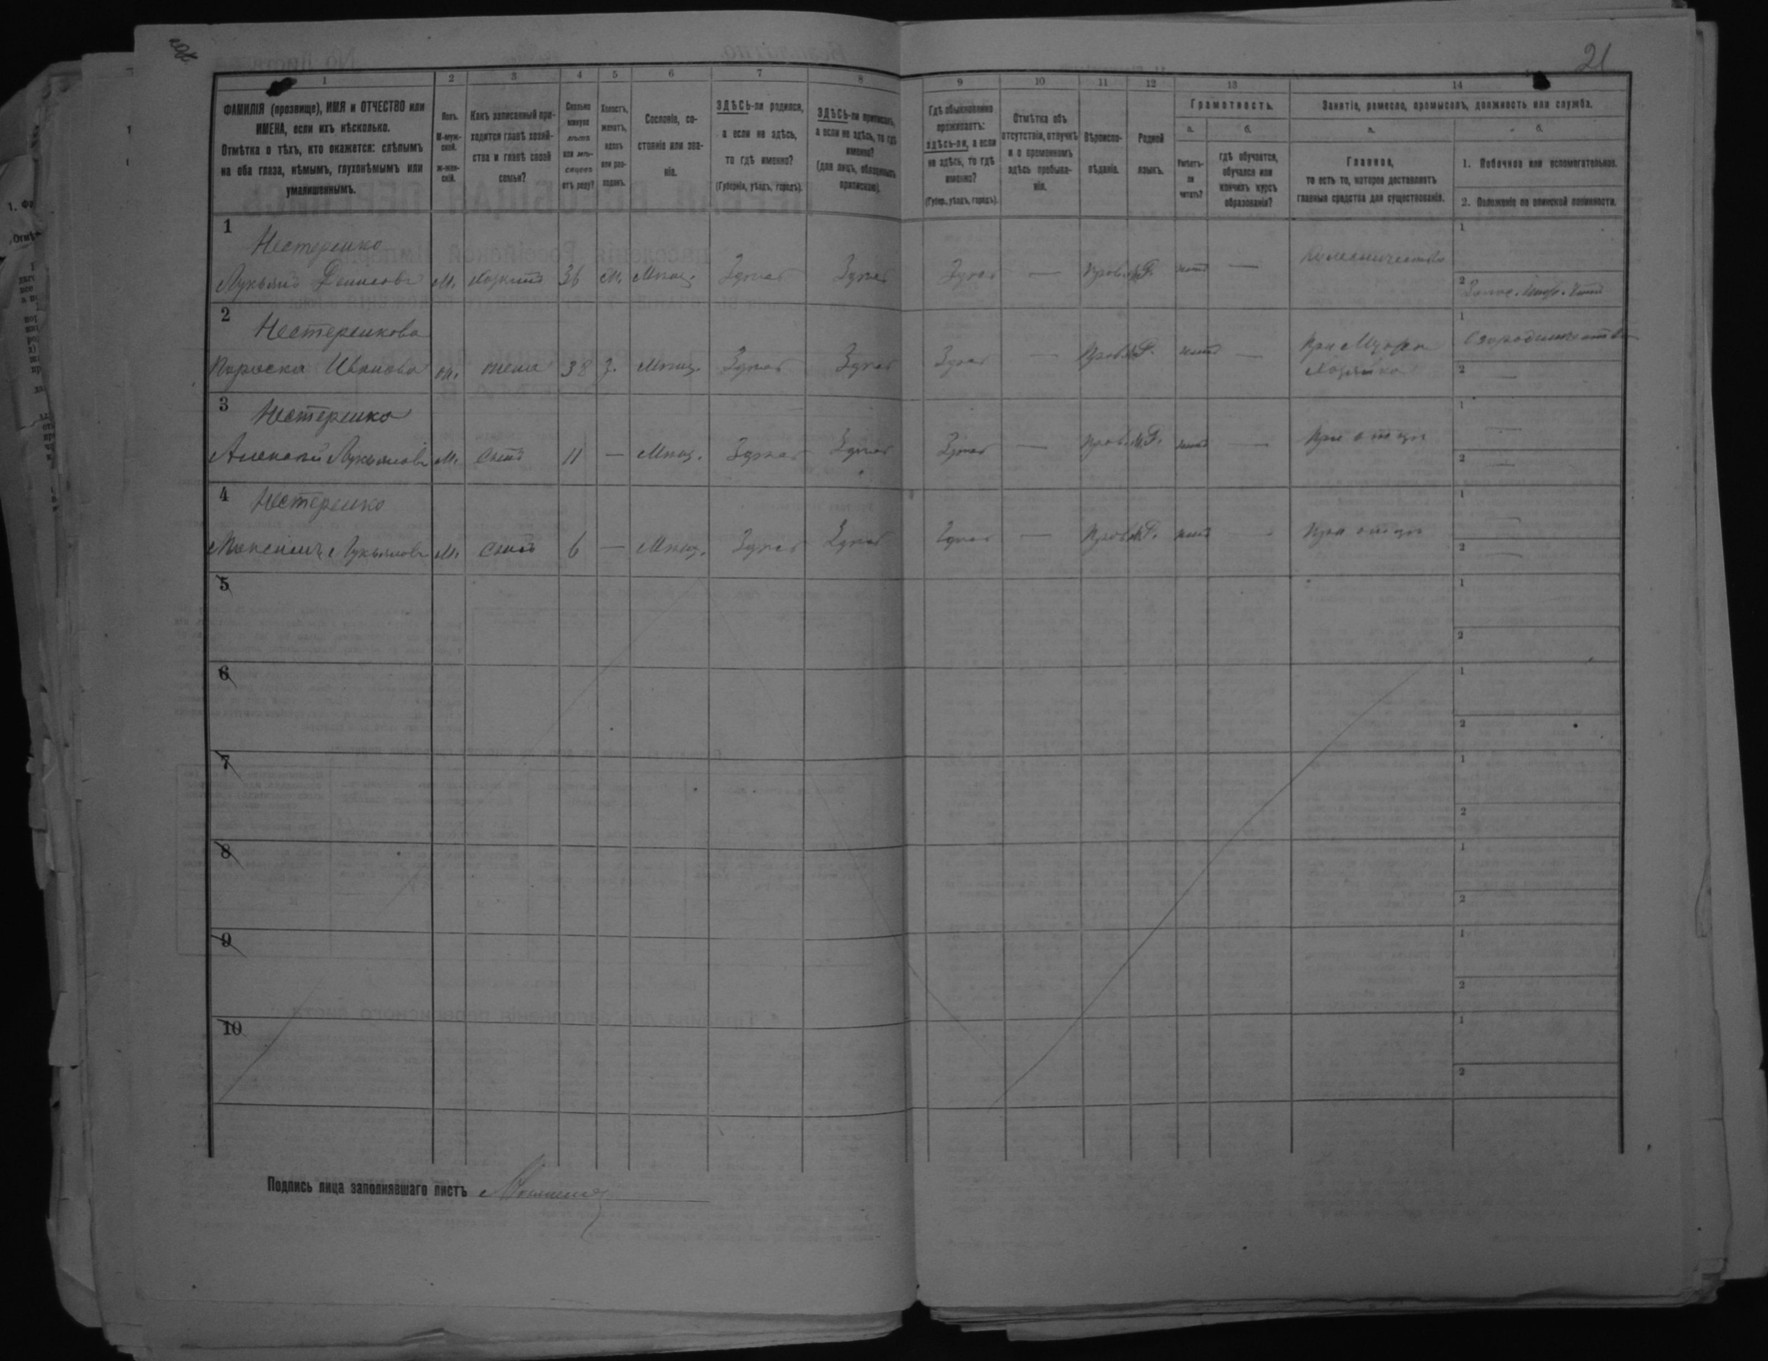 21
1 2 3 4 5 6 7 8 9 10 11 12 13 14
ФАМИЛІЯ (прозвище), ИМЯ и ОТЧЕСТВО или
ИМЕНА, если ихъ нѣсколько.
Отмѣтка о тѣхъ, кто окажется: слѣпымъ
на оба глаза, нѣмымъ, глухонѣмымъ или
умалишеннымъ.
Полъ.
М-муж-
ской.
ж-жен-
скій.
Какъ записанный при-
ходится главѣ хозяй-
ства и главѣ своей
семьи?
Сколько
минуло
лѣтъ
или мѣ-
сяцевъ
отъ роду?
Холостъ,
женатъ,
вдовъ
или раз-
веденъ.
Сословіе, со-
стояніе или зва-
ніе.
ЗДѢСЬ-ли родился,
а если не здѣсь,
то гдѣ именно?
(Губернія, уѣздъ, городъ).
ЗДѢСЬ-ли приписанъ,
а если не здѣсь, то гдѣ
именно?
(для лицъ, обязанныхъ
припиской).
Гдѣ обыкновенно
проживаетъ:
здѣсь-ли, а если
не здѣсь, то гдѣ
именно?
(Губер., уѣздъ, городъ).
Отмѣтка объ
отсутствіи, отлучкѣ
и о временномъ
здѣсь пребыва-
ніи.
Вѣроиспо-
вѣданіе.
Родной
языкъ.
Грамотность.
а.
Умѣетъ-
ли
читать?
б.
гдѣ обучается,
обучался или
кончилъ курсъ
образованія?
Занятіе, ремесло, промыселъ, должность или служба.
а.
Главное,
то есть то, которое доставляетъ
главныя средства для существованія.
б.
1. Побочное или вспомогательное.
2. Положеніе по воинской повинности.
1
Нестеренко
Лукьянъ Денисовъ М. хозяинъ 36 Мѣщ. Здѣсь Здѣсь Здѣсь — Прав. М.Р. нѣтъ —
1
2
2
Нестеренкова
Параска Иванова ж. жена 38 З. Мѣщ. Здѣсь Здѣсь Здѣсь — Прав. М.Р. нѣтъ — При Мужѣ
Хозяйка
1
2 —
3
Нестеренко
Алексѣй Лукьяновъ М. сынъ 11 — Мѣщ. Здѣсь Здѣсь Здѣсь — Прав. М.Р. нѣтъ — При отцѣ
1 —
2 —
4
Нестеренко
Максимъ Лукьяновъ М. сынъ 6 — Мѣщ. Здѣсь Здѣсь Здѣсь — Прав. М.Р. нѣтъ — При отцѣ
1 —
2 —
5
1
2
6
1
2
7
1
2
8
1
2
9
1
2
10
1
2
Подпись лица заполнявшаго листъ